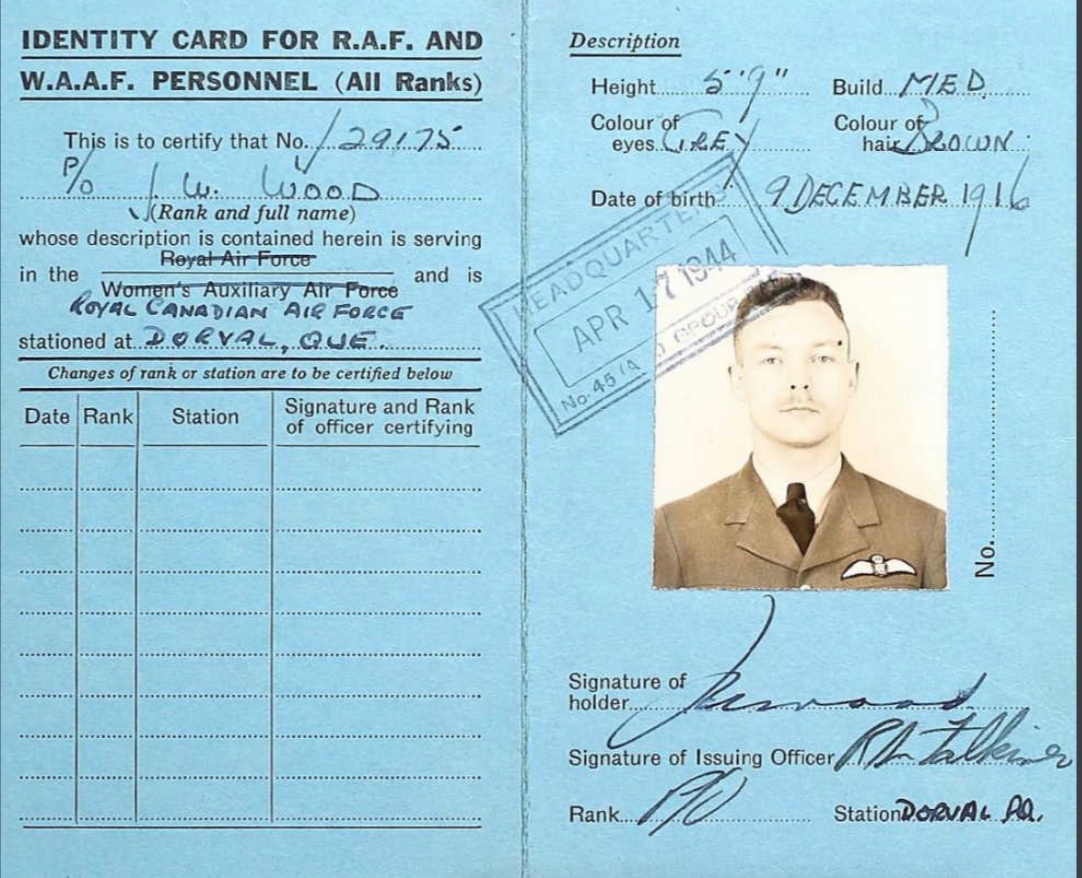 IDENTITY CARD FOR R.A.F. AND
W.A.A.F. PERSONNEL (All Ranks)
This is to certify that No. J 29175
P/O J. W. WOOD
(Rank and full name)
whose description is contained herein is serving
Royal Air Force
in the Women's Auxiliary Air Force and is
ROYAL CANADIAN AIR FORCE
stationed at DORVAL, QUE.
Changes of rank or station are to be certified below
Date Rank Station Signature and Rank
of officer certifying
Description
Height 5'9" Build MED.
Colour of eyes GREY Colour of hair BROWN
Date of birth 9 DECEMBER 1916
HEADQUARTERS
APR 17 1944
No. 45 (A GROUP
No.
Signature of
holder JWWood
Signature of Issuing Officer
Rank P/O Station DORVAL P.Q.